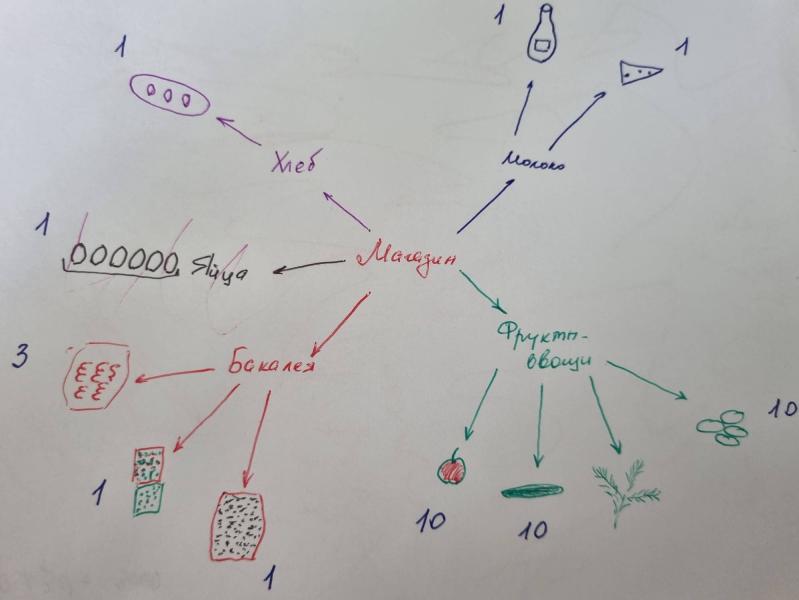 1
1
1
Хлеб
Молоко
1
Яйца
Магазин
Фрукты-
овощи
3
Бакалея
10
1
10
10
1